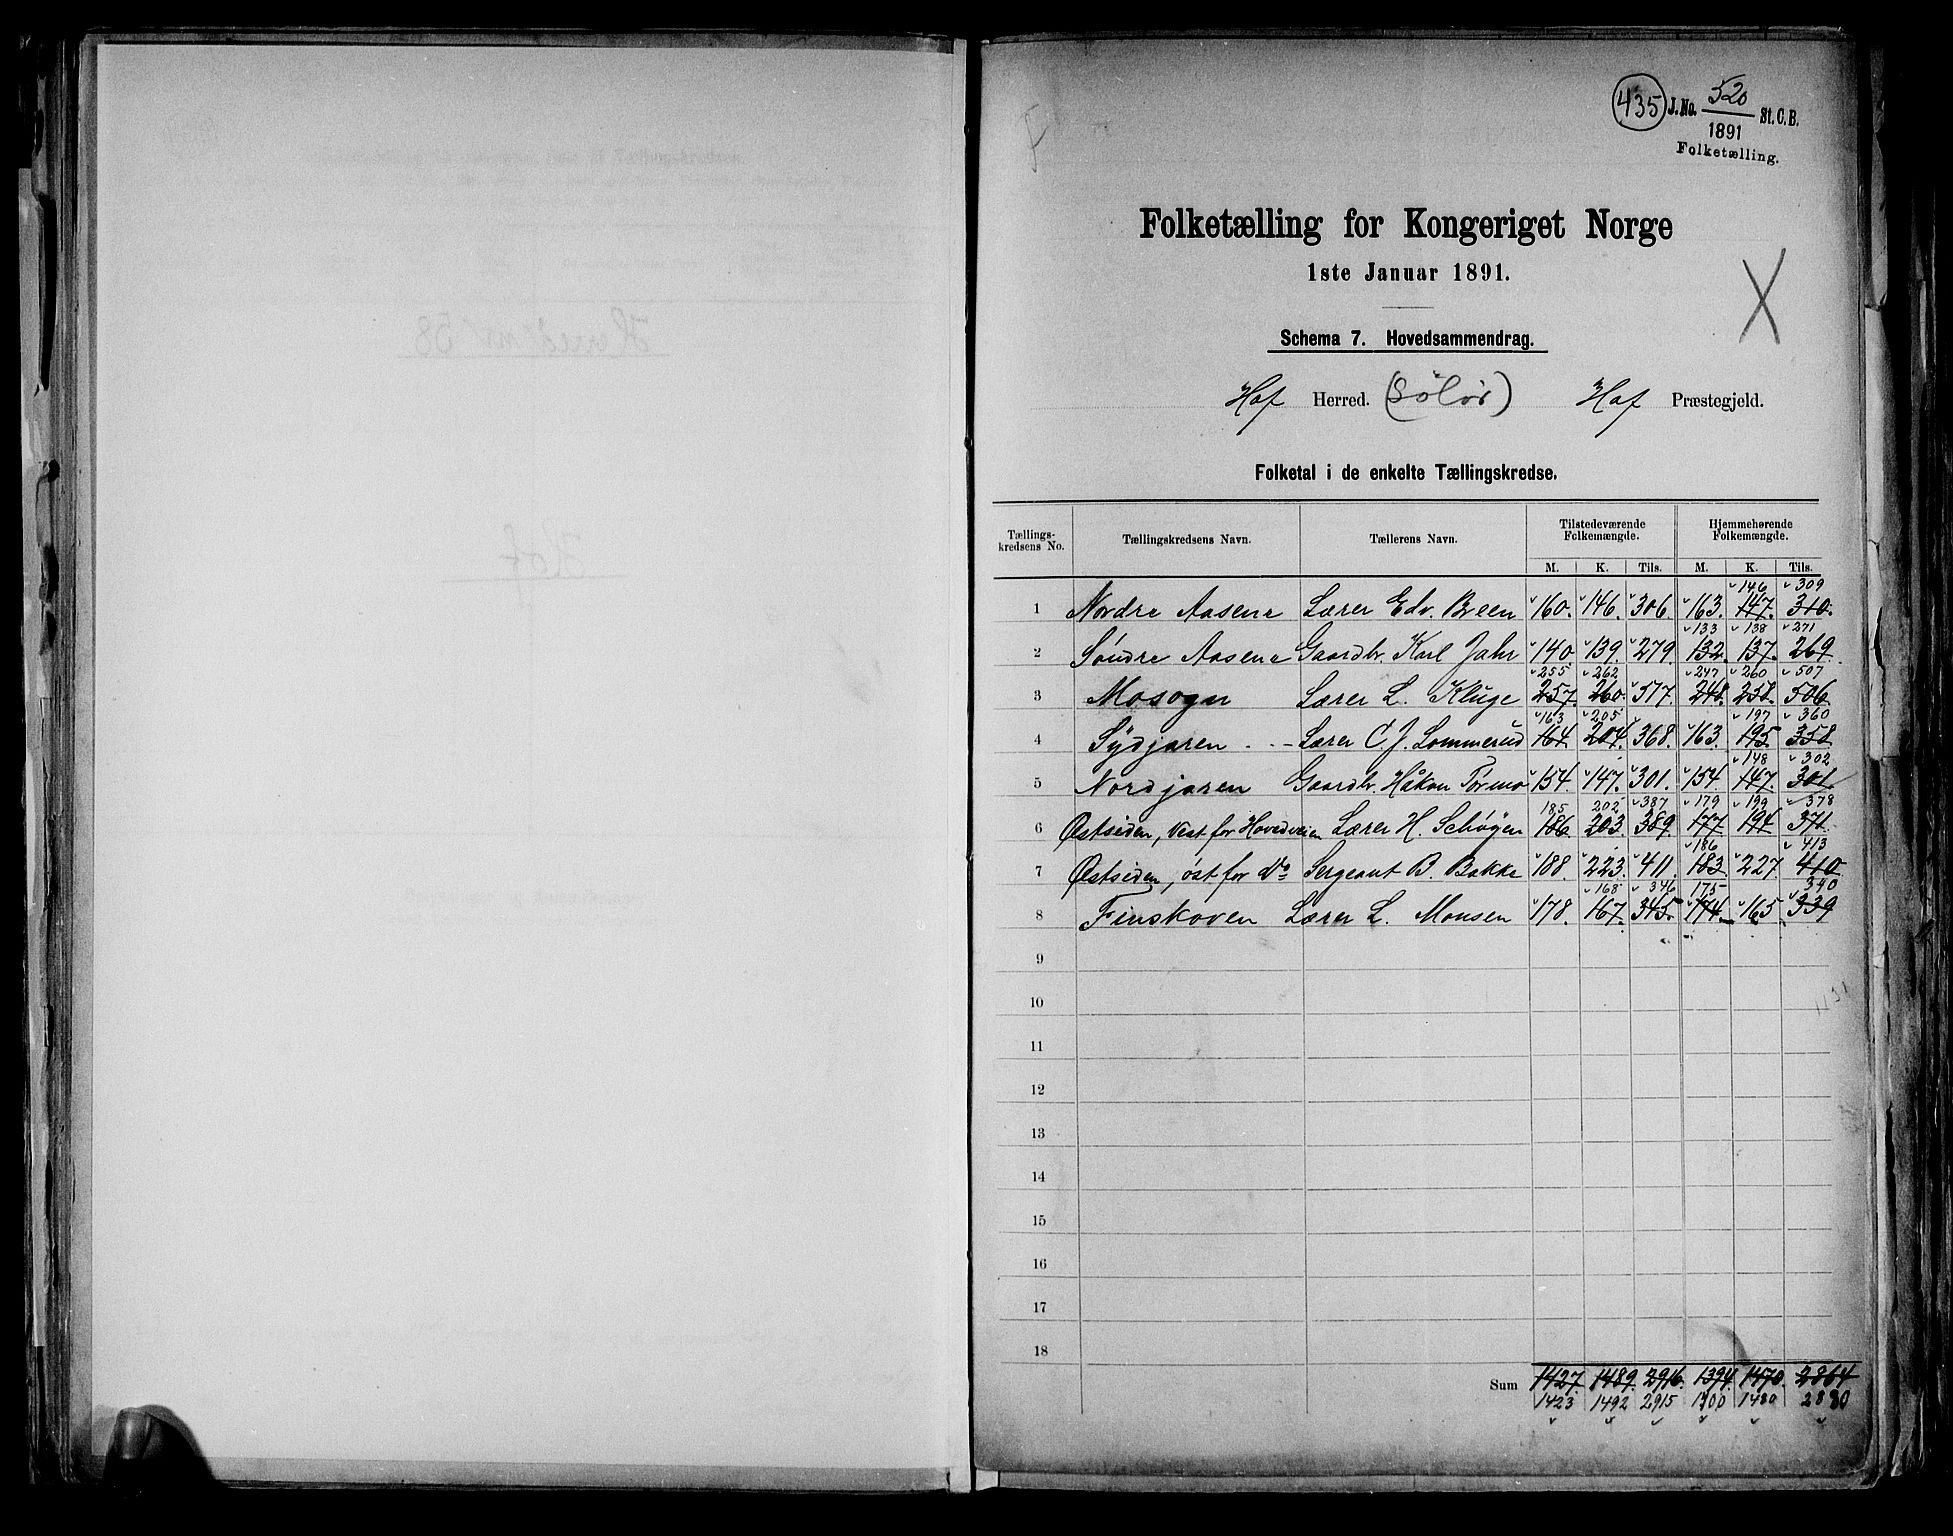 435 J. No. 520 St. C. B.
1891
Folketælling.
Folketælling for Kongeriget Norge
1ste Januar 1891.
Schema 7. Hovedsammendrag.
Hof Herred. (Solør) Hof Præstegjeld.
Folketal i de enkelte Tællingskredse.
Tællings-kredsens No. Tællingskredsens Navn. Tællerens Navn. Tilstedeværende Folkemængde. Hjemmehørende Folkemængde.
M. K. Tils. M. K. Tils.
146 309
1 Nordre Aasene Lærer Edv. Breen 160. 146. 306. 163. 147. 310.
133 138 271
2 Söndre Aasene Gaardbr. Karl Jahr 140 139. 279. 132. 137. 269.
255 262 247 260 507
3 Mosogn Lærer L. Kluge 257. 260. 517. 248. 258. 506.
163 205 197 360
4 Sydjaren Lærer C. J. Lommerud 164 204. 368. 163. 195. 358
148 302
5 Nordjaren Gaardbr. Håkon Tørmo 154. 147. 301. 154. 147. 301
185 202 387 179 199 378
6 Østsiden, vest for Hovedveien Lærer H. Schøyen 186. 203. 389. 177. 194. 371.
186 413
7 Østsiden, öst for do Sergeant B. Bakke 188. 223. 411. 183. 227. 410
168 346 175 340
8 Finskoven Lærer L. Monsen 178. 167. 345. 174. 165. 339
9
10
11
12
13
14
15
16
17
18
Sum 1427. 1489. 2916. 1394. 1470. 2864
1423 1492 2915 1400 1480 2880